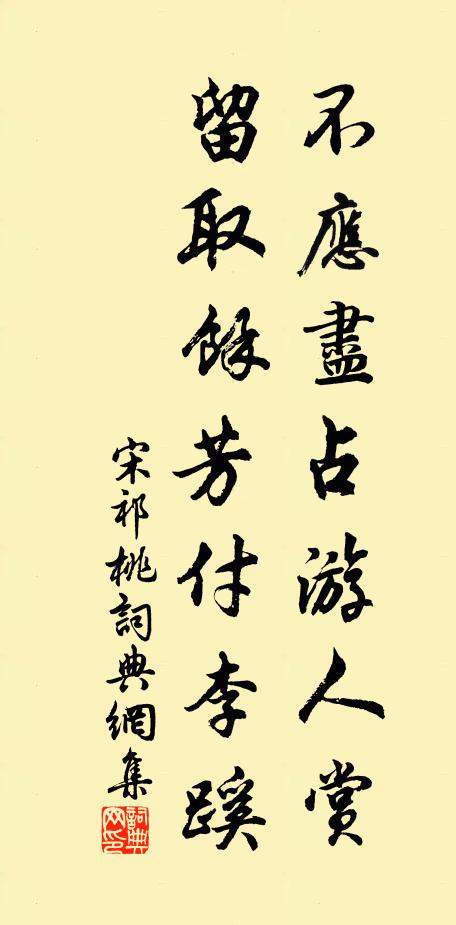 不應盡占游人賞
留取餘芳付李蹊
宋祁桃詞典網集
詞典网印